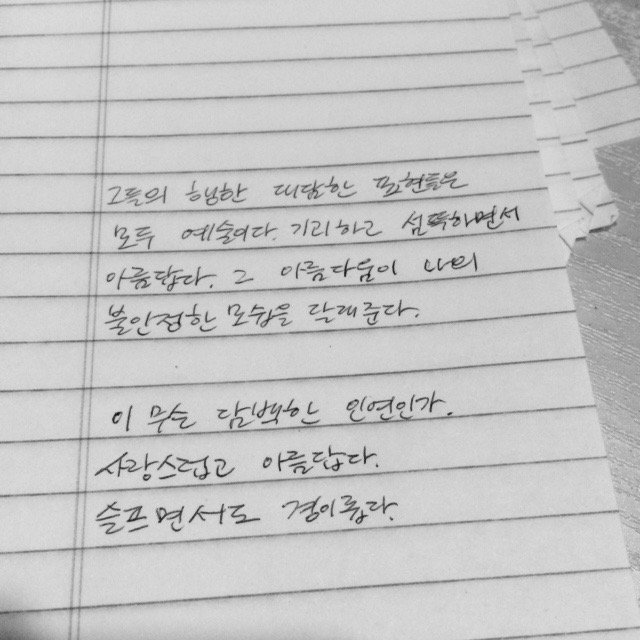 그들의 행한 대담한 표현들은
모두 예술이다. 기리하고 섬뜩하면서
아름답다. 그 아름다움이 나의
불안정한 모습을 달래준다.
이 무슨 담백한 인연인가.
사랑스럽고 아름답다.
슬프면서도 경이롭다.